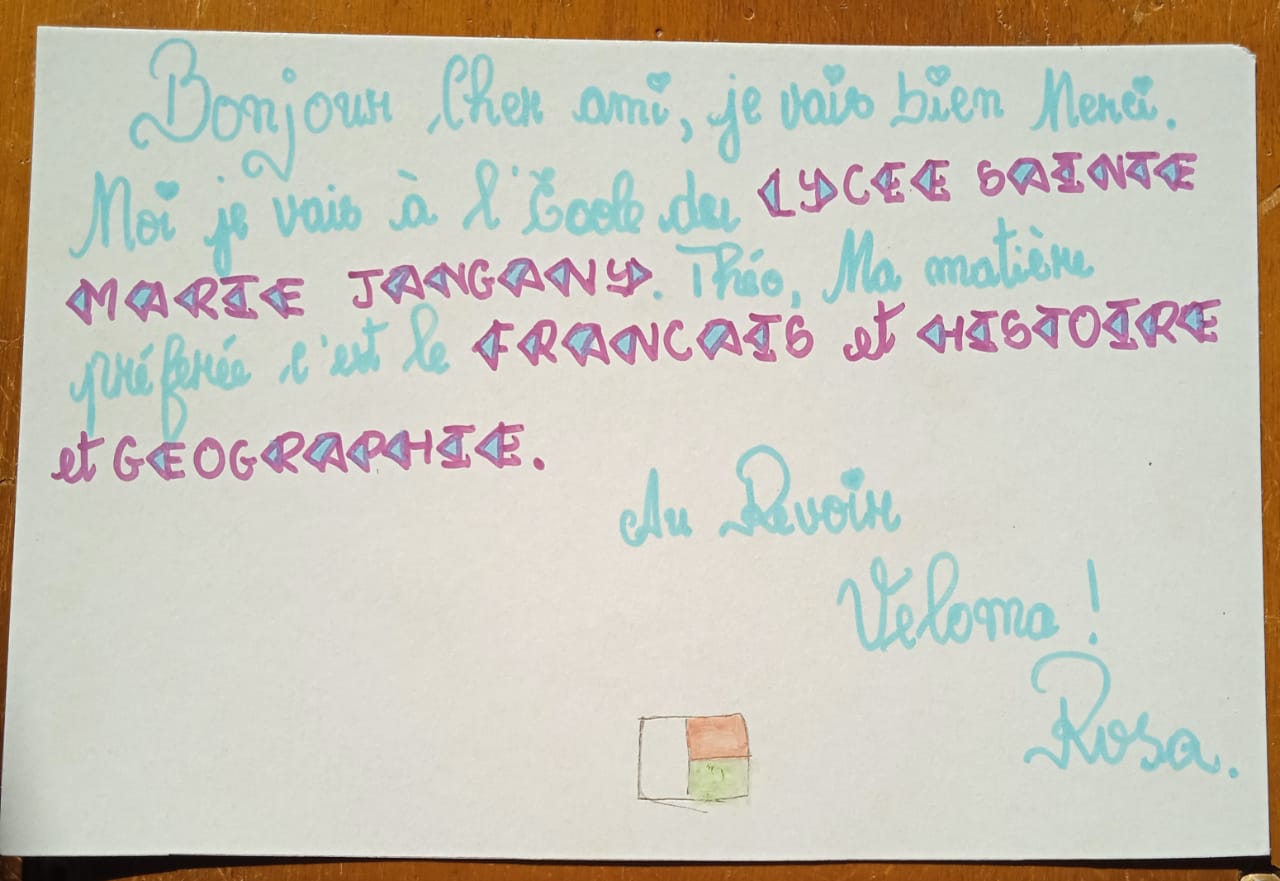 Bonjour Cher ami, je vais bien Merci.
Moi je vais à l'Ecole du LYCEE SAINTE
MARIE JANGANY. Théo, Ma matière
préferée c'est le FRANCAIS et HISTOIRE
et GEOGRAPHIE.
Au Revoir
Veloma !
Rosa.